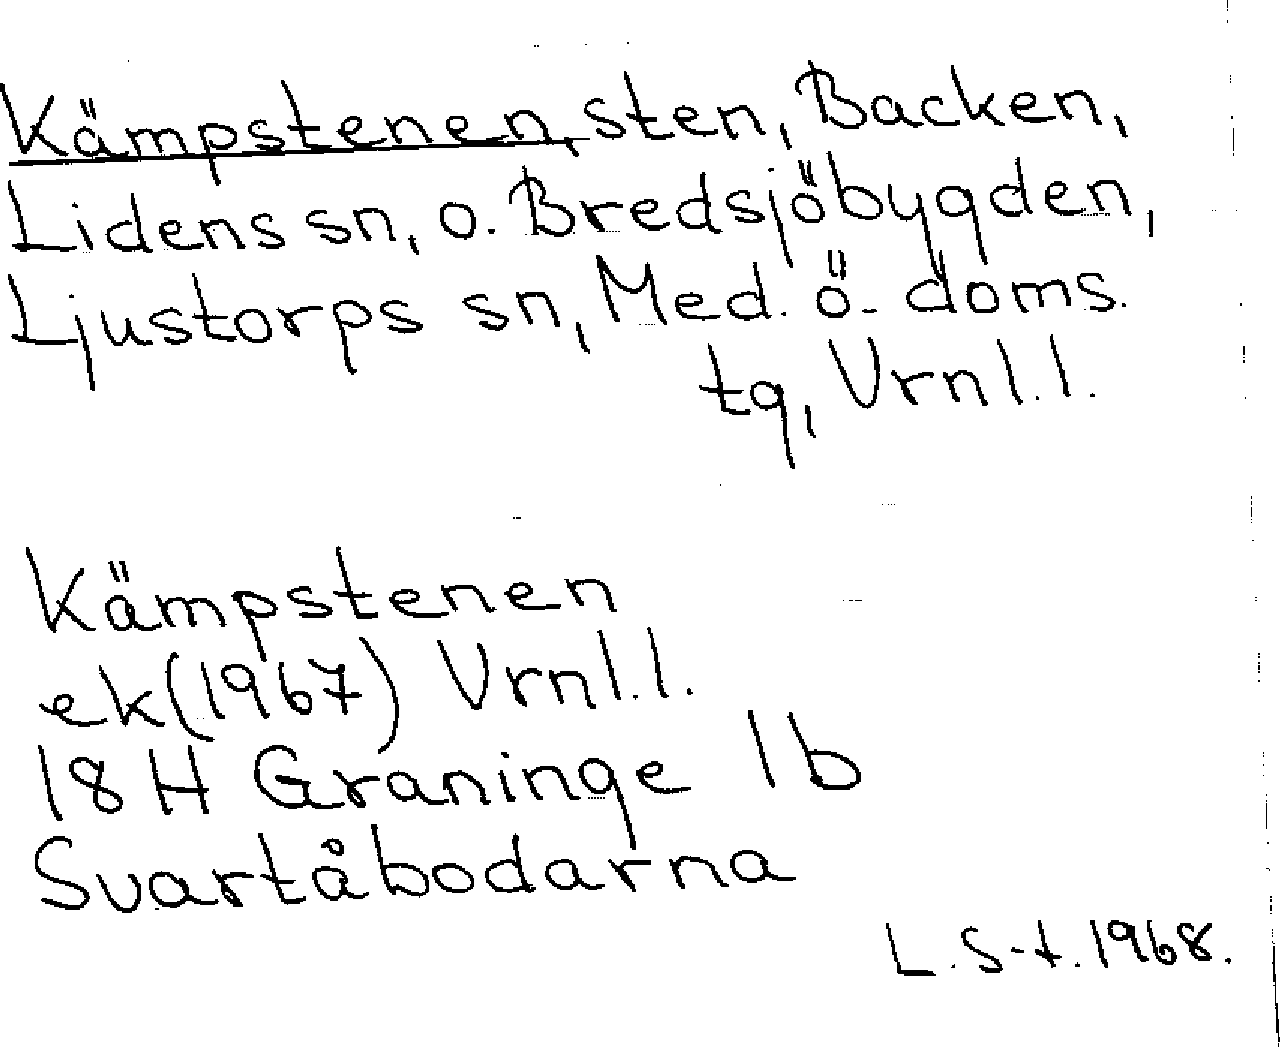 Kämpstenen, sten, Backen,
Lidens sn, o. Bredsjöbygden,
Ljustorps sn, Med. ö. doms.
tg, Vrnl.l.
Kämpstenen
ek (1967) Vrnl.l.
18 H Graninge 1b
Svartåbodarna
L. S-t. 1968.